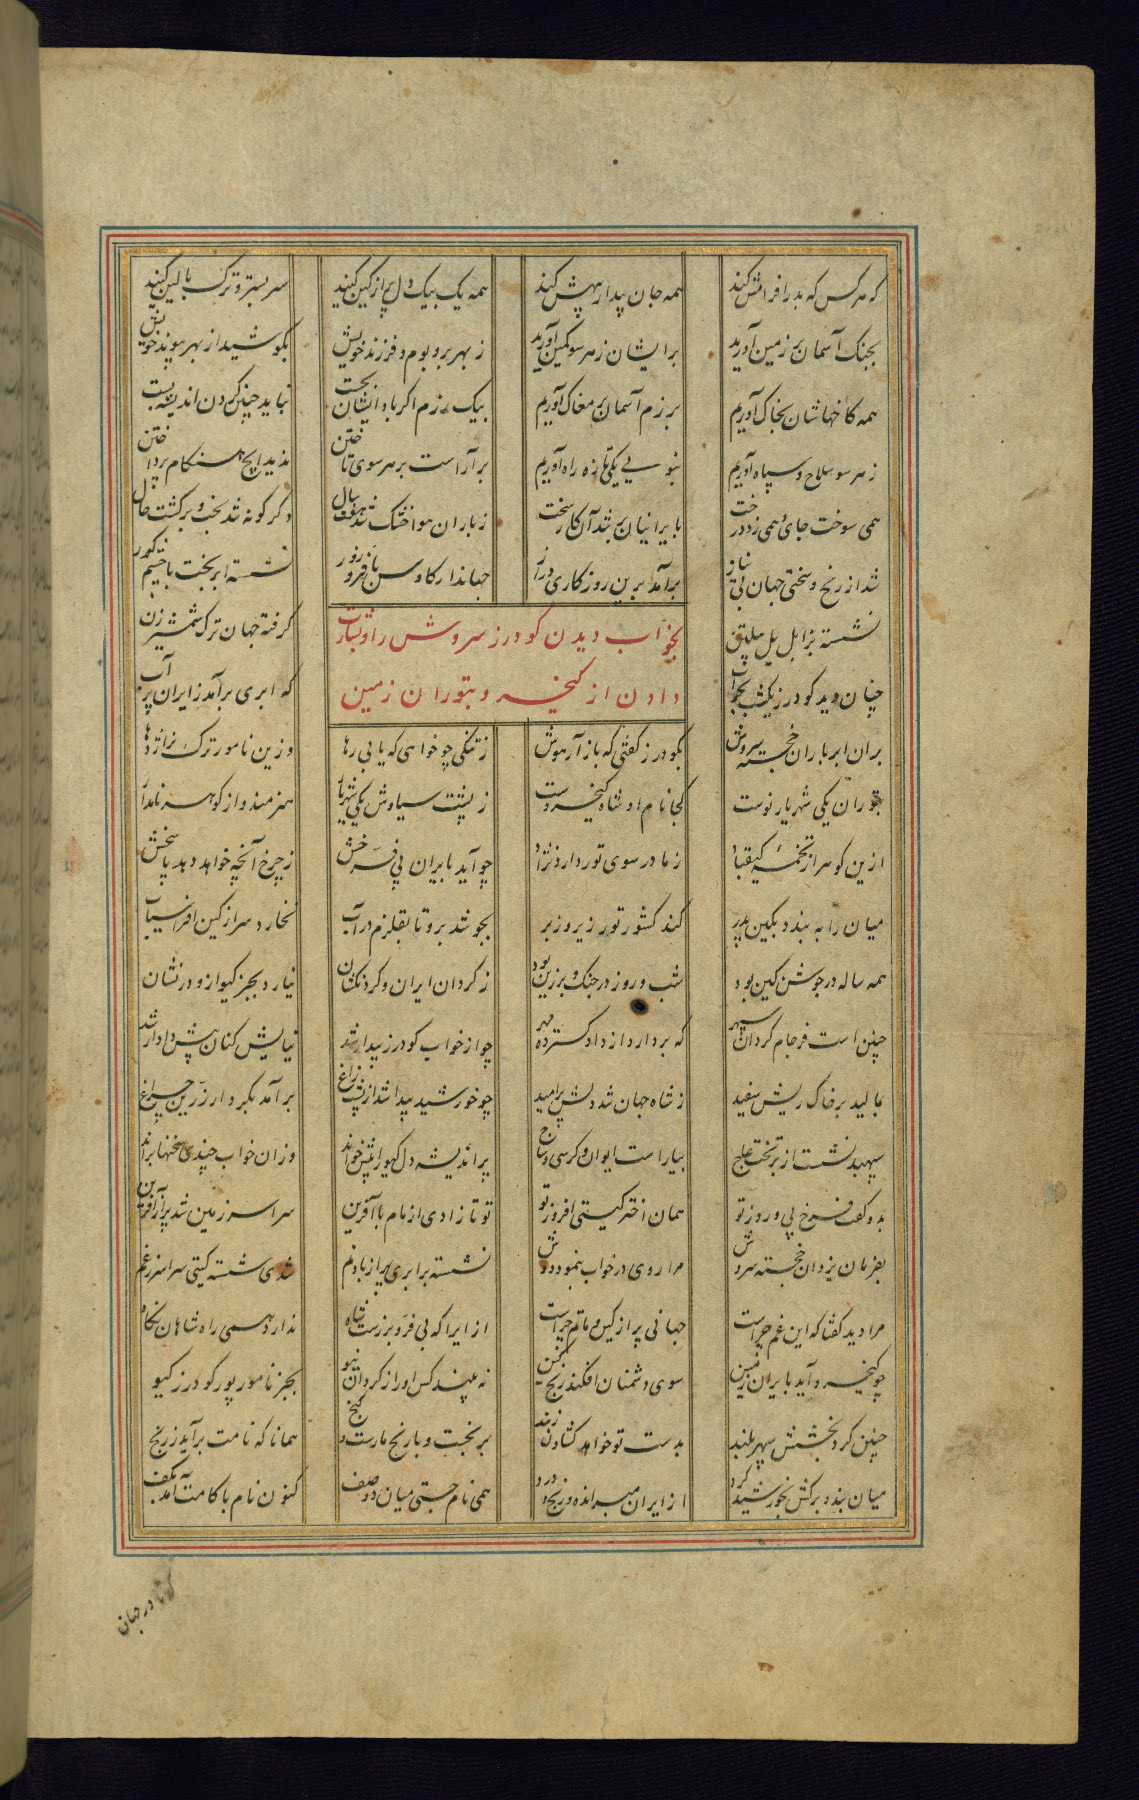 که هر کس که بد را فرامش کند همه جان بیدار بیهش کند همه یک بیک دل پر از کین کنید سر بستر و ترک بالین کنید
بجنگ آسمان بر زمین آورید بر ایشان ز هر سو کمین آورید ز بهر بر و بوم و فرزند خویش بکوشید از بهر پیوند خویش
همه کاخهاشان بخاک آوریم برزم آسمان بر مغاک آوریم بیک رزم اگر باد ایشان بجست نباید چنین کردن اندیشه پست
ز هر سو سلاح و سپاه آوریم بنوی یکی تازه راه آوریم برآراست بر هر سوی تاختن ندید ایچ هنگام پرداختن
همی سوخت جای و همی زد درخت بایرانیان بر شد آن کار سخت ز باران هوا خشک شد هفت سال دگر گونه شد بخت و برگشت حال
شد از رنج و سختی جهان بی نیاز برآمد برین روزگاری دراز جهاندار کاوس نشسته ابر تخت با خشم
نشسته بزابل یل پیلتن گرفته جهان ترک شمشیر زن
بخواب دیدن گودرز سروش را و بشارت
دادن از کیخسرو بتوران زمین
چنان دید گودرز یکشب بخواب که ابری برآمد ز ایران پر آب
بران ابر باران خجسته سروش بگودرز گفتی که باز آر هوش ز تنگی چو خواهی که یابی رها وزین نامور ترک نر اژدها
بتوران یکی شهریار نوست کجا نام او شاه کیخسروست ز پشت سیاوش یکی شهریار هنرمند و از گوهر نامدار
ازین گوهر از تخمه کیقباد ز مادر سوی تور دارد نژاد چو آید بایران پی فرخش ز چرخ آنچه خواهد دهد پاسخش
میان را به بندد بکین پدر کند کشور تور زیر و زبر بجوشد برو تا بقلزم در آب نخارد سر از کین افراسیاب
همه ساله در جوشن کین بود شب و روز در جنگ و بر زین بود ز گردان ایران و گردنکشان نیارد بجز گیو ازو در نشان
چنین است فرجام گردان سپهر که بر دارد از داد گسترده مهر چو از خواب گودرز بیدار شد نیایش کنان پیش دادار شد
بمالید بر خاک ریش سفید ز شاه جهان شد دلش پر امید چو خورشید پیدا شد از پشت زاغ برآمد بکردار زرین چراغ
سپهبد نشست از بر تخت عاج بیاراست ایوان و کرسی و تاج پر اندیشه دل گیو را پیش خواند وزان خواب چندی سخنها براند
بدو گفت فرخ پی و روز تو همان اختر گیتی افروز تو تو تا زادی از مام با آفرین سراسر زمین شد پر از آفرین
بفرمان یزدان خجسته سروش مرا روی در خواب بنمود دوش نشسته بر ابری پر از باد و نم شدی شسته گیتی سراسر ز غم
مرا دید گفتا که این غم چراست جهانی پر از کین و ماتم چراست ازیرا که بی فر و برزست شاه ندارد همی راه شاهان نگاه
چو کیخسرو آید بایران زمین سوی دشمنان افکند رنج و کین نه بیند کس او را ز گردان نیو بجز نامور پور گودرز گیو
چنین کرد بخشش سپهر بلند بدست تو خواهد گشادن ز بند بر بخت و با رنج مارست و گنج همانا که نامت برآید ز رنج
میان بندد بر کش بخورشید گرد از ایران میرانده و رنج و درد همی نام جستی میان دو صف کنون نام با کامت آمد بکف
در جهان